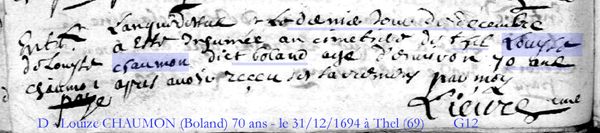 Lan que dessus & le dernie Jour de decembre
Entt. a Esté Inhumée au cimetriere de thil Louysse
de Louyse chaumon dict boland agé d'environ 70 ans
chaumon apres avoir reçeu ses sacrements par moy
Lievre curé
D - Louize CHAUMON (Boland) 70 ans - le 31/12/1694 à Thel (69) G12